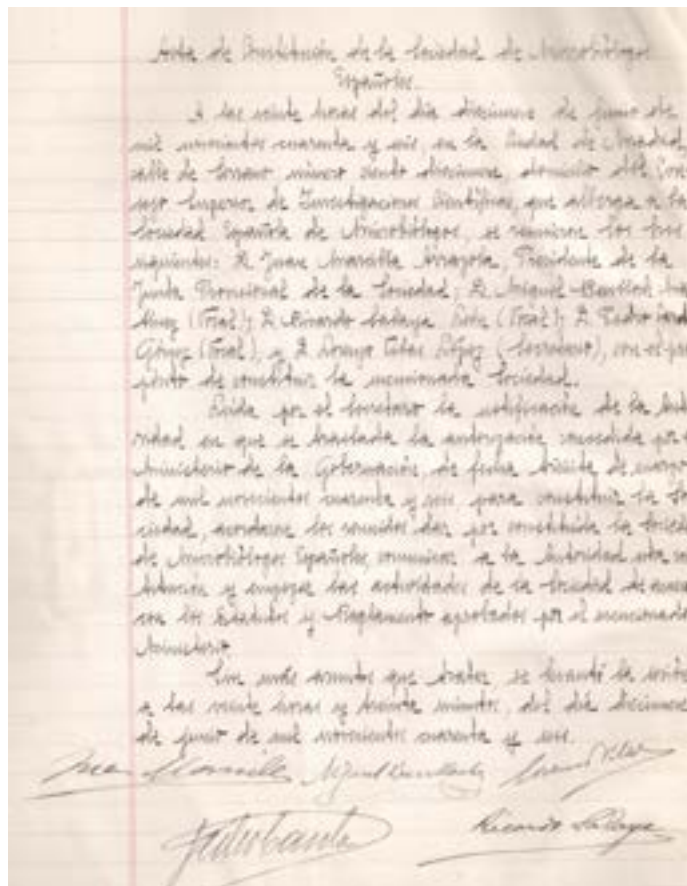 Acta de Constitución de la Sociedad de Microbiólogos
Españoles.
A las veinte horas del día diecinueve de junio de
mil novecientos cuarenta y seis, en la Ciudad de Madrid,
calle de Serrano número ciento diecinueve, domicilio del Con-
sejo Superior de Investigaciones Científicas, que alberga a la
Sociedad Española de Microbiólogos, se reunieron los Sres.
siguientes: D. Juan Marcilla Arrazola, Presidente de la
Junta Provisional de la Sociedad; D. Miguel
(Vocal); D. Ricardo (Vocal); D. Pedro
Gómez (Vocal), y D. Lorenzo Vilas López (Secretario), con el pro
pósito de constituir la mencionada Sociedad.
Leída por el Secretario la notificación de la Auto
ridad en que se traslada la autorización concedida por e
Ministerio de la Gobernación, de fecha de
de mil novecientos cuarenta y seis para constituir la So
ciedad, acordaron los reunidos dar por constituida la Socied
de Microbiólogos Españoles, comunicar a la Autoridad esta
y empezar las actividades de la Sociedad de acuer
con los Estatutos y Reglamento aprobados por el mencionado
Ministerio
Sin más asuntos que tratar, se levantó la
a las veinte horas y treinta minutos, del día diecinueve
de junio de mil novecientos cuarenta y seis.
Juan Marcilla Lorenzo Vilas
Ricardo